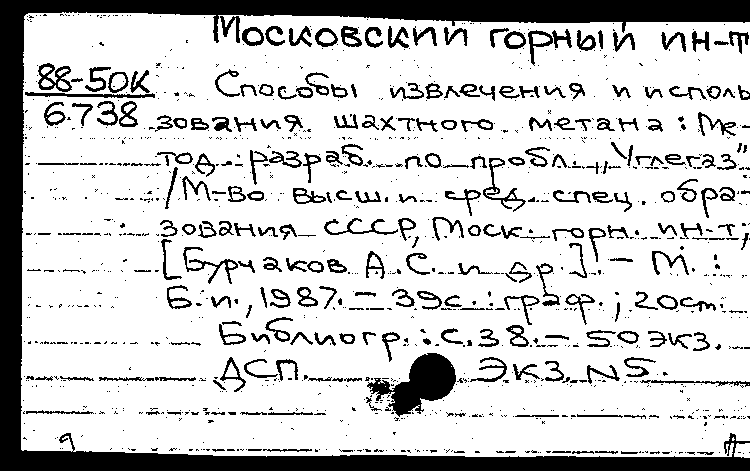 Московский горный ин-т
88-50К
6738
Способы извлечения и исполь
зования шахтного метана: Ме-
тод. разраб. по пробл. „Углегаз"
/М-во высш. и сред. спец. обра-
зования СССР, Моск. горн. ин-т;
[Бурчаков А.С. и др.]. - М.:
Б.и., 1987. - 39с.: граф.; 20см.
Библиогр.: с.38. - 50экз.
ДСП. Экз. N5.
9